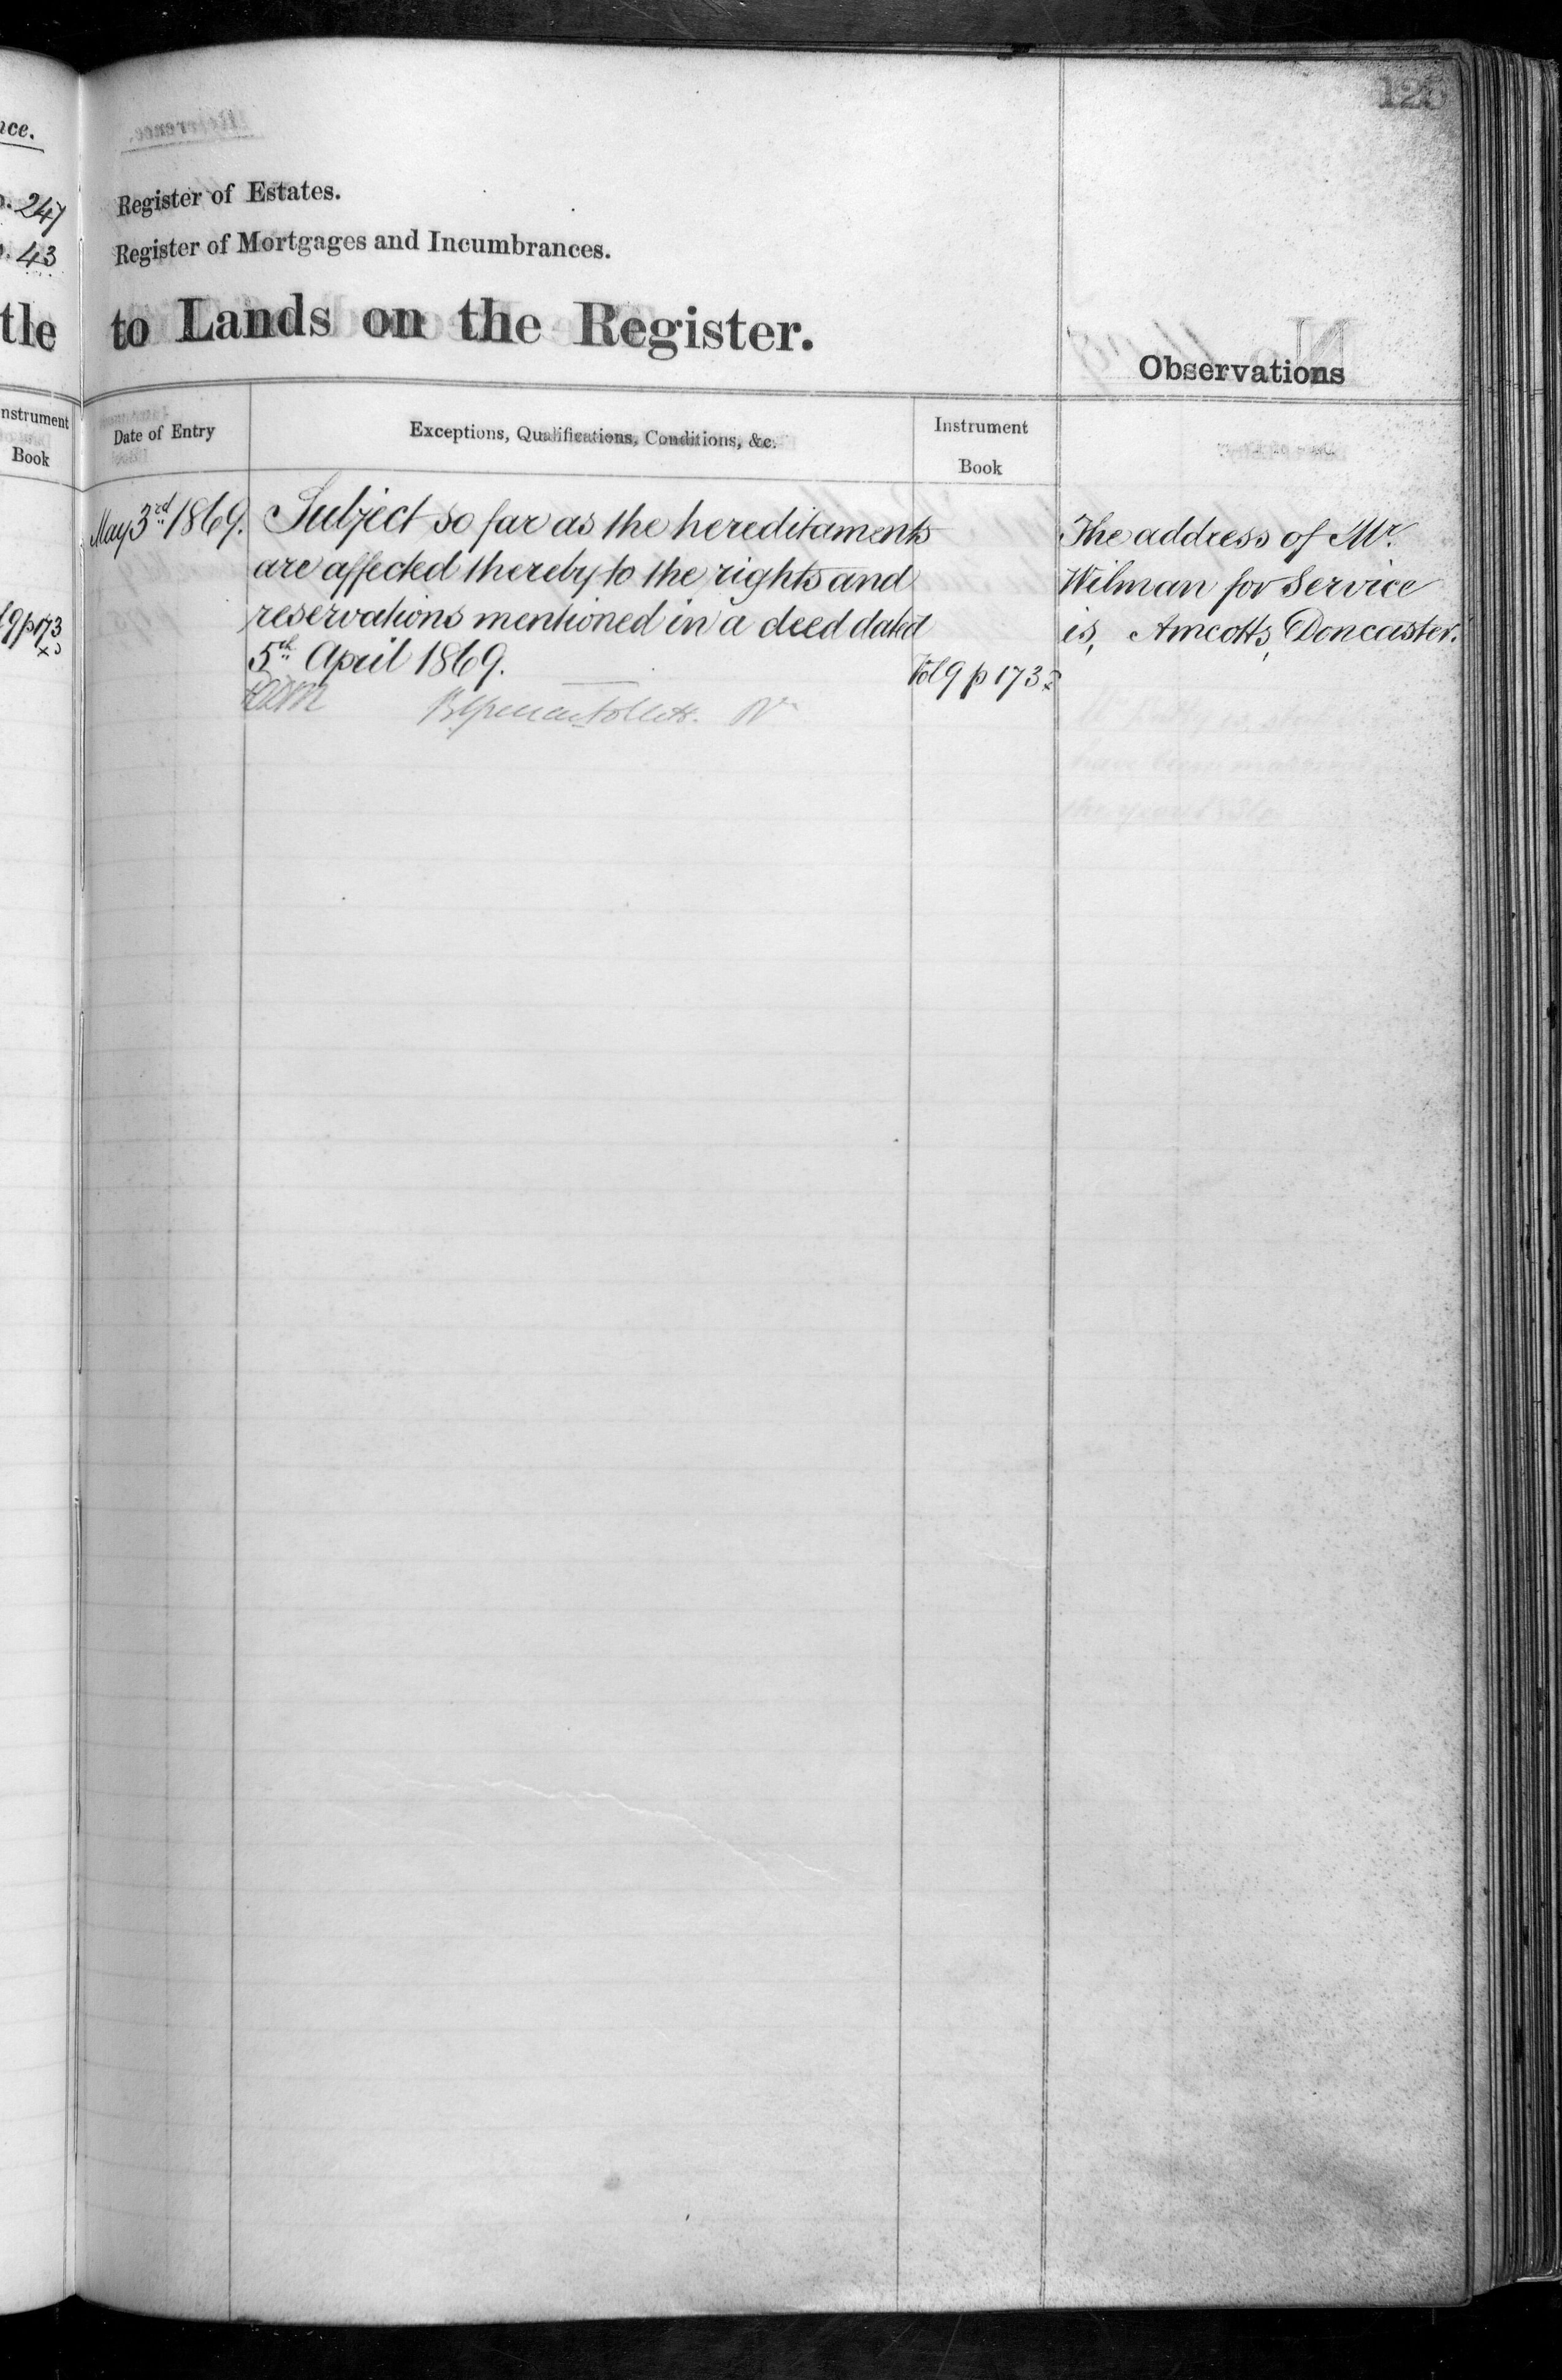 nce.
247
43
tle
Instrument
Book
9 p 173
125
Register of Estates.
Register of Mortgages and Incumbrances.
to Lands on the Register.
Observations
Date of Entry
Exceptions, Qualifications, Conditions, &c.
Instrument
Book
May 3rd 1869.
Subject so far as the hereditaments
are affected thereby to the rights and
reservations mentioned in a deed dated
5th April 1869.
Vol 9 p 173
The address of Mr.
Wilman for Service
is, Amcotts, Doncaster.